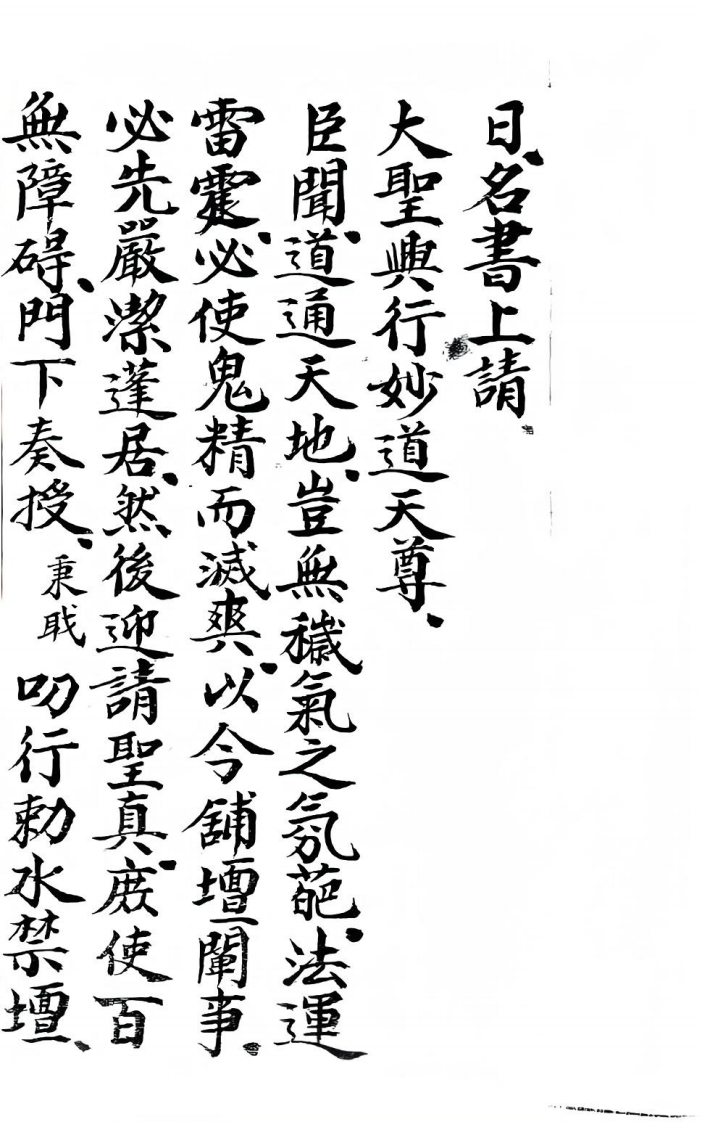 日、名書上請
大聖興行妙道天尊、
臣聞、道通天地、豈無穢氣之氛葩、法運
雷霆、必使鬼精而滅爽、以今舖壇闡事、
必先嚴潔蓬居、然後迎請聖真、庶使百
無障碍、門下奏授、秉職叨行勅水禁壇、